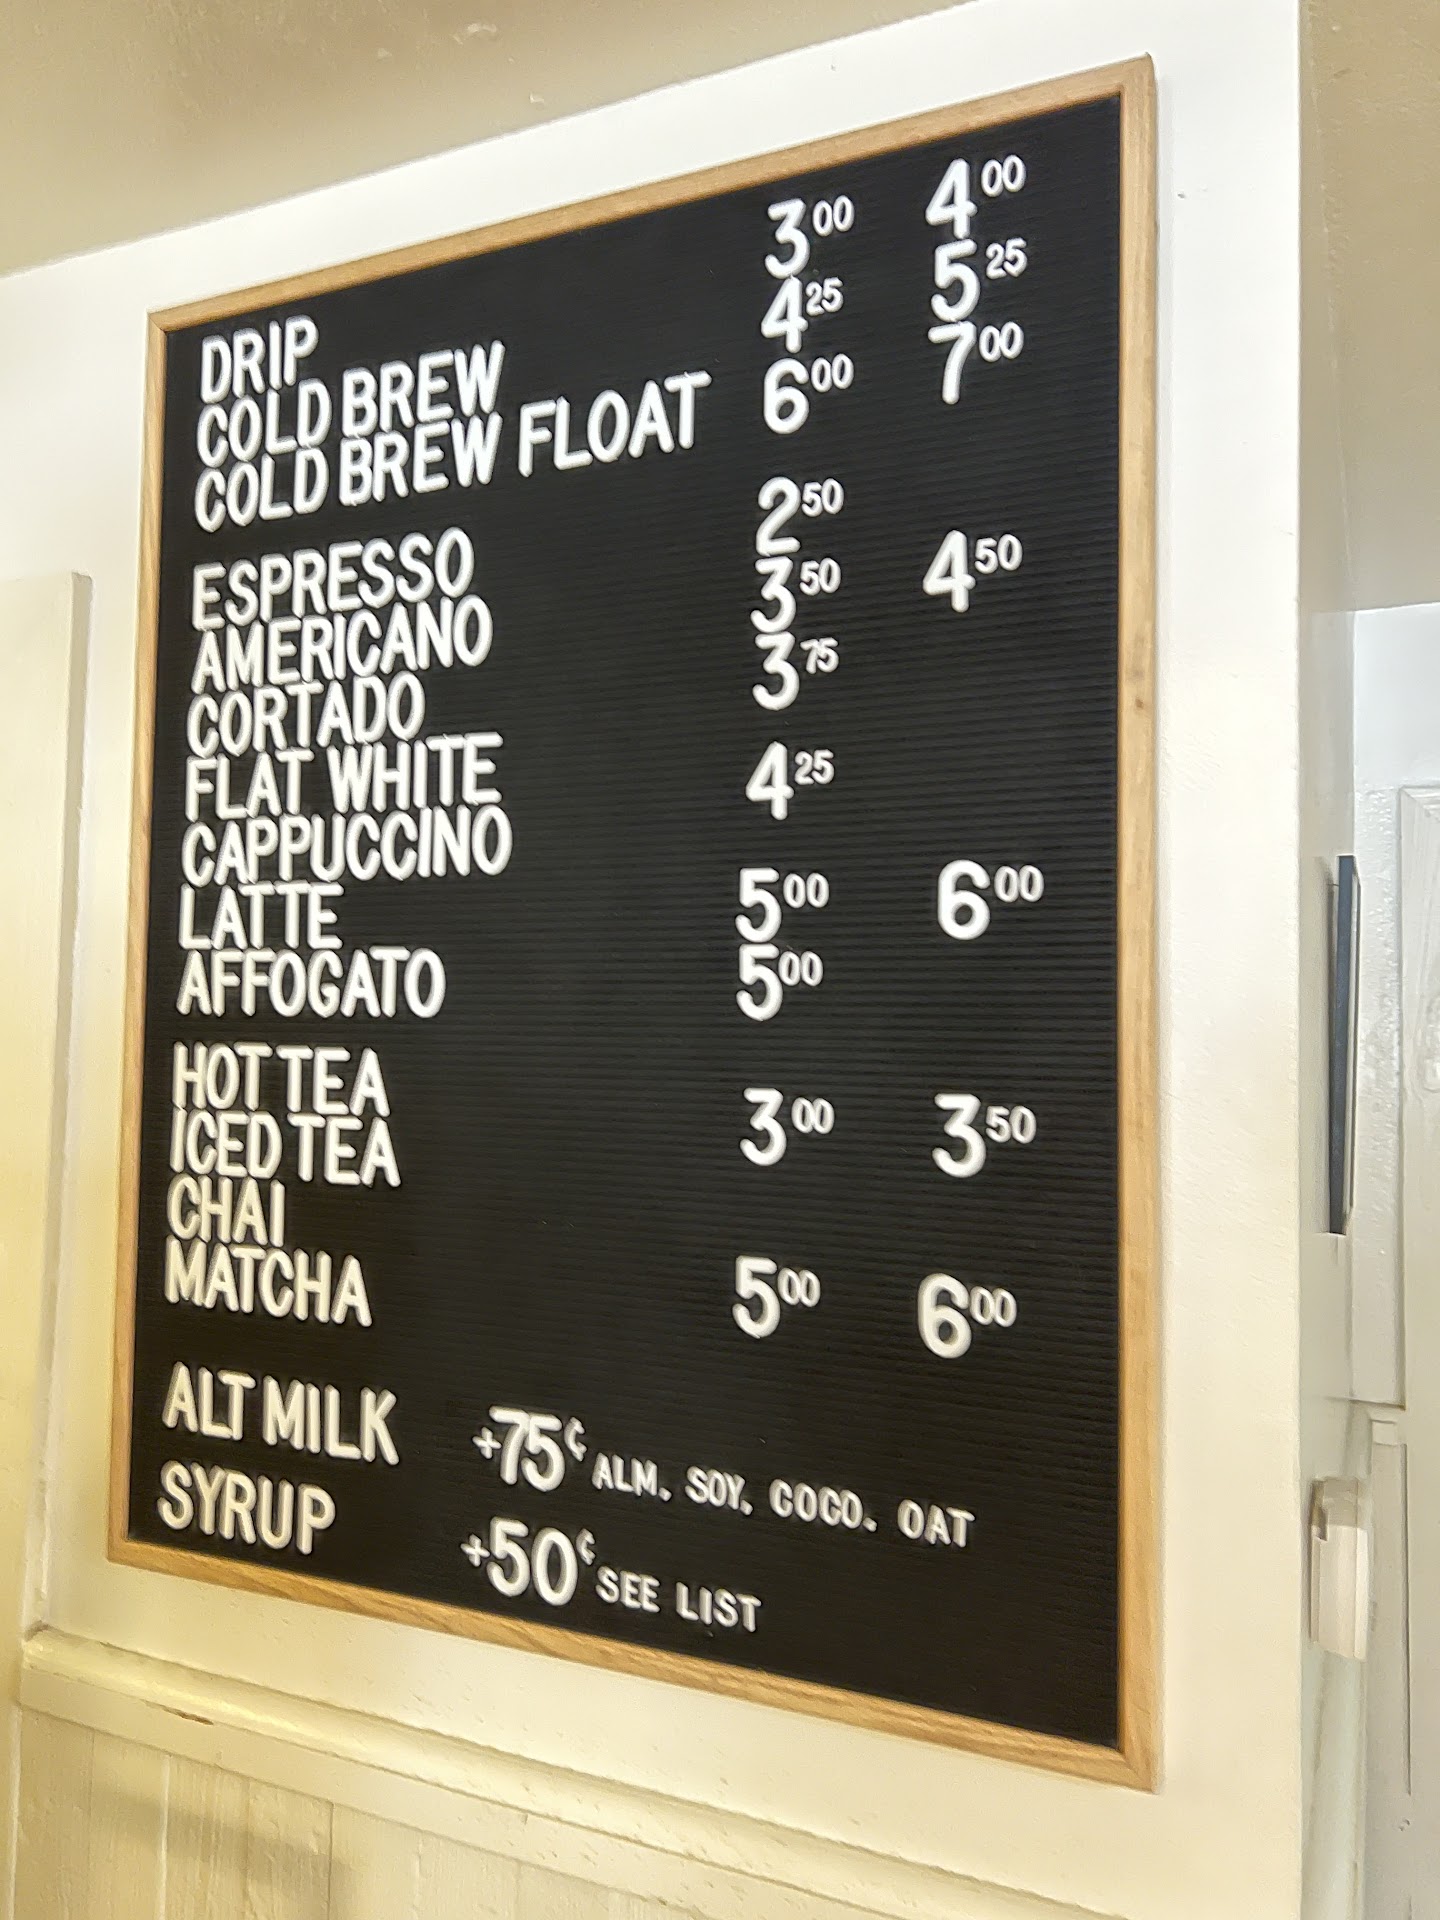 DRIP 3.00 4.00
COLD BREW 4.25 5.25
COLD BREW FLOAT 6.00 7.00
ESPRESSO 2.50
AMERICANO 3.50 4.50
CORTADO 3.75
FLAT WHITE
4.25
CAPPUCCINO
LATTE 5.00 6.00
AFFOGATO 5.00
HOT TEA
3.00 3.50
ICED TEA
CHAI
5.00 6.00
MATCHA
ALT MILK +75¢ ALM. SOY. COCO. OAT
SYRUP +50¢ SEE LIST